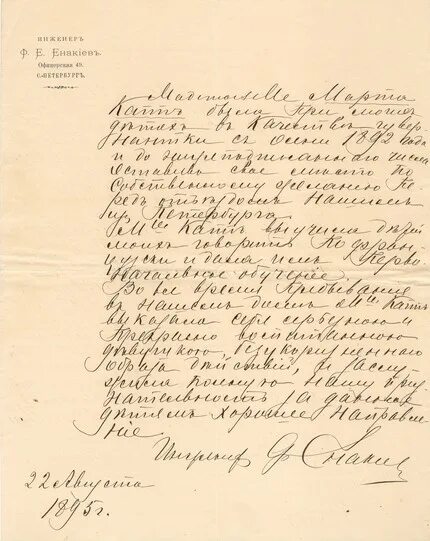 ИНЖЕНЕРЪ
Ф. Е. ЕНАКІЕВЪ.
Офицерская 49.
С.-ПЕТЕРБУРГЪ.
Mademoiselle Марта
Каттъ была при моихъ
дѣтяхъ въ качествѣ гувер-
нантки съ осени 1892 года
и до нижеподписаннаго числа
оставивъ свое мѣсто по
собственному желанію пе-
редъ отъѣздомъ нашимъ
изъ Петербурга.
M<sup>lle</sup> Каттъ выучила дѣтей
моихъ говорить по фран-
цузски и дала имъ перво-
начальное обученіе.
Во все время пребыванія
въ нашемъ домѣ M<sup>lle</sup> Каттъ
выказала себя серьезною и
прекрасно воспитанною
дѣвушкою, безукоризненнаго
образа дѣйствій, и заслу-
жила полную нашу при-
знательность за данное
дѣтямъ хорошее направле-
ніе.
Инженеръ Ф. Енакіевъ
22 Августа
1895 г.